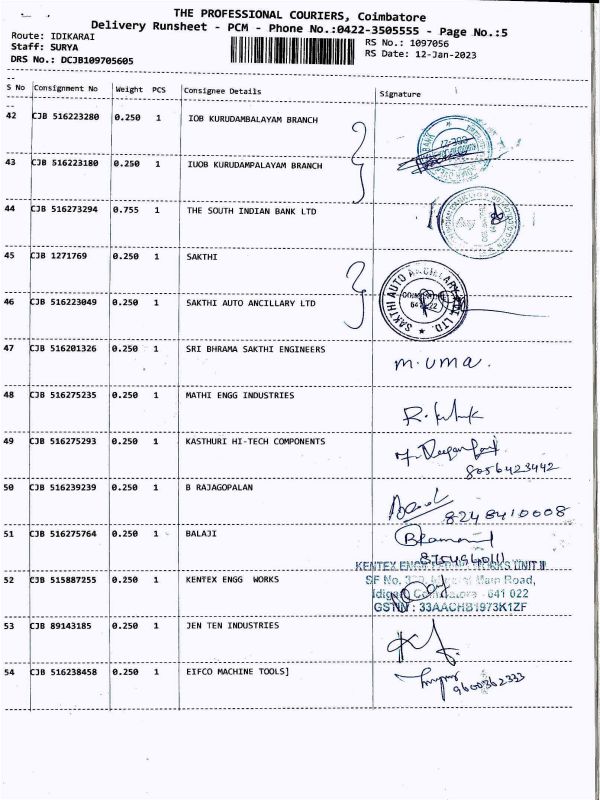 THE PROFESSIONAL COURIERS, Coimbatore
Delivery Runsheet - PCM - Phone No.:0422-3505555 - Page No.:5
Route: IDIKARAI
Staff: SURYA
DRS No.: DCJB109705605
RS No.: 1097056
RS Date: 12-Jan-2023
S No Consignment No Weight PCS Consignee Details Signature
42 CJB 516223280 0.250 1 IOB KURUDAMBALAYAM BRANCH
43 CJB 516223180 0.250 1 IUOB KURUDAMPALAYAM BRANCH
44 CJB 516273294 0.755 1 THE SOUTH INDIAN BANK LTD
45 CJB 1271769 0.250 1 SAKTHI
46 CJB 516223049 0.250 1 SAKTHI AUTO ANCILLARY LTD
SAKTHI AUTO ANCILLARY PVT. LTD.
47 CJB 516201326 0.250 1 SRI BHRAMA SAKTHI ENGINEERS
M.UMA.
48 CJB 516275235 0.250 1 MATHI ENGG INDUSTRIES
49 CJB 516275293 0.250 1 KASTHURI HI-TECH COMPONENTS
8056423442
50 CJB 516239239 0.250 1 B RAJAGOPALAN
8248410008
51 CJB 516275764 0.250 1 BALAJI
KENTEX ENGINEERING WORKS UNIT II
52 CJB 515887255 0.250 1 KENTEX ENGG WORKS
SF No. Main Road,
Idigarai Coimbatore - 641 022
GSTN : 33AACHB1973K1ZF
53 CJB 89143185 0.250 1 JEN TEN INDUSTRIES
54 CJB 516238458 0.250 1 EIFCO MACHINE TOOLS]
9600362333